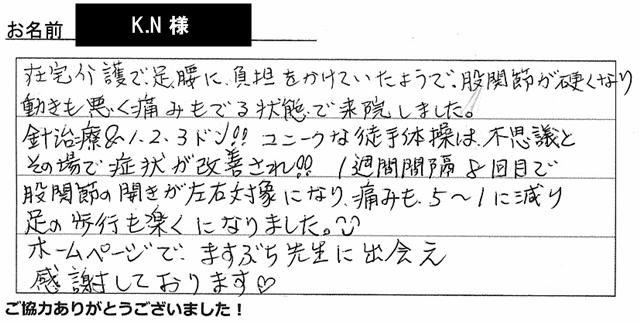 お名前 K.N 様
在宅介護で、足腰に、負担をかけていたようで、股関節が硬くなり
動きも悪く痛みもでる状態で来院しました。
針治療&1、2、3ドン!! ユニークな徒手体操は、不思議と
その場で症状が改善され!! 1週間間隔8回目で
股関節の開きが左右対象になり、痛みも、5〜1に減り
足の歩行も楽くになりました。
ホームページで、ますぶち先生に出会え
感謝しております♡
ご協力ありがとうございました!